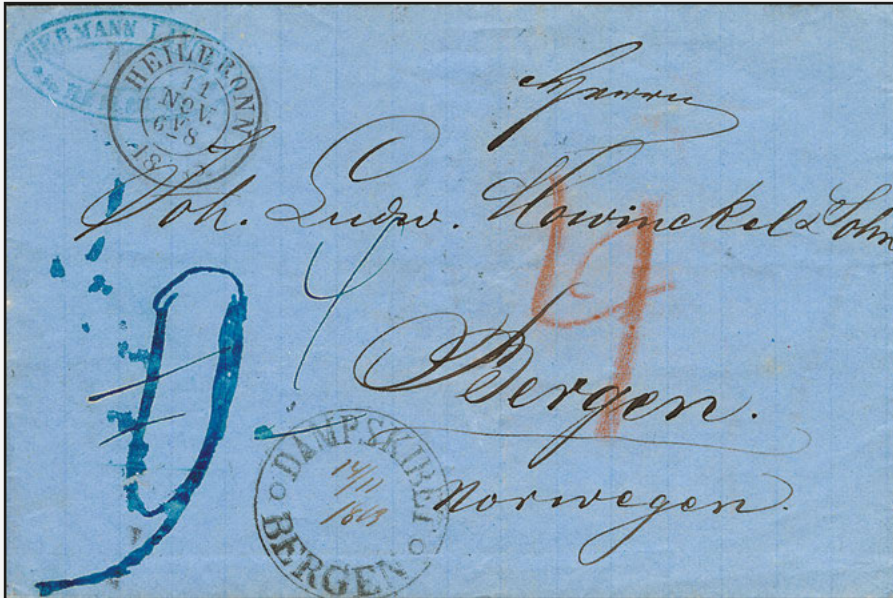 HERMANN
HEILBRONN
11
NOV.
6 N 8
Herrn
Joh. Ludw. Mowinckel & Sohn
4
4
Bergen.
Norwegen.
DAMPSKIBET
14/11
1863
BERGEN